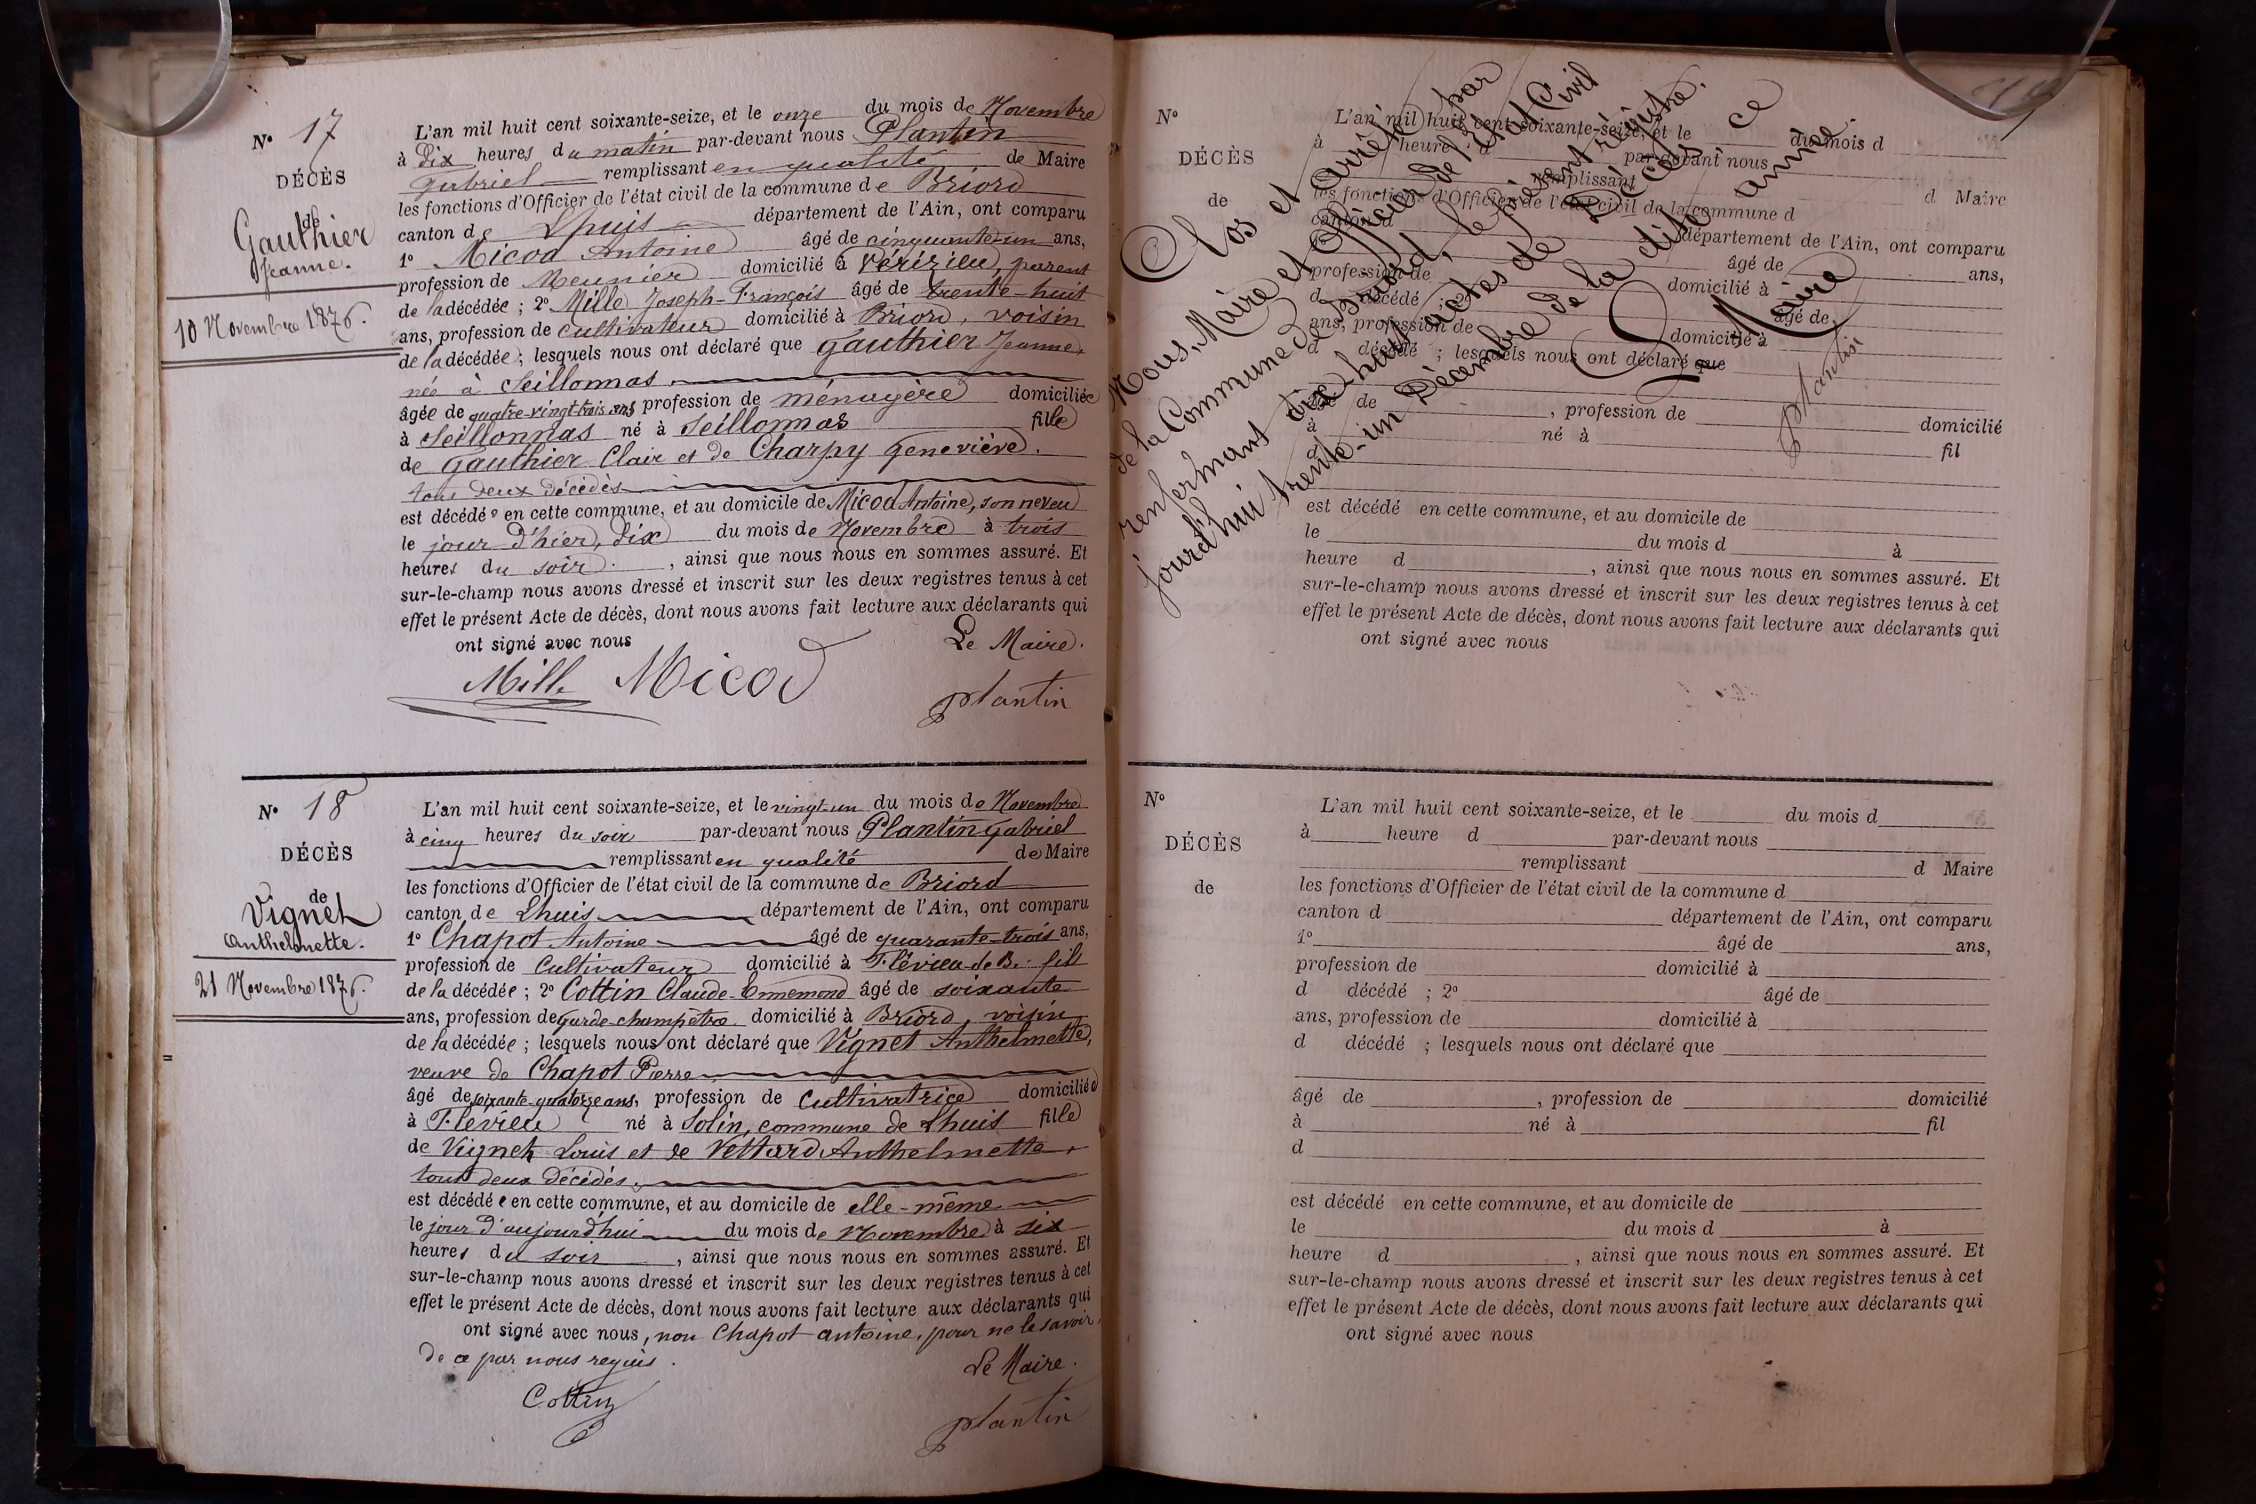 N° 17
DÉCÈS
de
Gauthier
Jeanne.
10 Novembre 1876.
L'an mil huit cent soixante-seize, et le onze du mois de Novembre
à dix heures du matin par-devant nous Plantin
Gabriel remplissant en qualité de Maire
les fonctions d'Officier de l'état civil de la commune de Briord
canton de Lhuis département de l'Ain, ont comparu
1° Micod Antoine âgé de cinquante-un ans,
profession de Meunier domicilié à Vérizieu, parent
de la décédée ; 2° Mille Joseph-François âgé de trente-huit
ans, profession de cultivateur domicilié à Briord, voisin
de la décédée ; lesquels nous ont déclaré que Gauthier Jeanne,
née à Seillonnas
âgée de quatre-vingt-trois ans profession de ménagère domiciliée
à Seillonnas né à Seillonnas fille
de Gauthier Clair et de Charpy Geneviève.
tous deux décédés
est décédée en cette commune, et au domicile de Micod Antoine, son neveu
le jour d'hier, dix du mois de Novembre à trois
heures du soir , ainsi que nous nous en sommes assuré. Et
sur-le-champ nous avons dressé et inscrit sur les deux registres tenus à cet
effet le présent Acte de décès, dont nous avons fait lecture aux déclarants qui
ont signé avec nous
Le Maire.
Mille Micod
plantin
N° 18
DÉCÈS
de
Vignet
Anthelmette.
21 Novembre 1876.
L'an mil huit cent soixante-seize, et le vingt-un du mois de Novembre
à cinq heures du soir par-devant nous Plantin Gabriel
remplissant en qualité de Maire
les fonctions d'Officier de l'état civil de la commune de Briord
canton de Lhuis département de l'Ain, ont comparu
1° Chapot Antoine âgé de quarante-trois ans,
profession de Cultivateur domicilié à Flévieu de B. fils
de la décédée ; 2° Cottin Claude-Ennemond âgé de soixante
ans, profession de garde-champêtre domicilié à Briord, voisin
de la décédée ; lesquels nous ont déclaré que Vignet Anthelmette,
veuve de Chapot Pierre
âgé de soixante-quatorze ans, profession de Cultivatrice domiciliée
à Flévieu né à Solin, commune de Lhuis fille
de Vignet Louis et de Vettard Anthelmette,
tous deux décédés.
est décédée en cette commune, et au domicile de elle-même
le jour d'aujourd'hui du mois de Novembre à six
heures du soir , ainsi que nous nous en sommes assuré. Et
sur-le-champ nous avons dressé et inscrit sur les deux registres tenus à cet
effet le présent Acte de décès, dont nous avons fait lecture aux déclarants qui
ont signé avec nous, non Chapot antoine, pour ne le savoir,
de ce par nous requis.
Le Maire.
Cottin
plantin
N°
DÉCÈS
de
L'an mil huit cent soixante-seize, et le du mois d
à heure d par-devant nous
remplissant d Maire
les fonctions d'Officier de l'état civil de la commune d
canton d département de l'Ain, ont comparu
1° âgé de ans,
profession de domicilié à
d décédé ; 2° âgé de
ans, profession de domicilié à
d décédé ; lesquels nous ont déclaré que
âgé de , profession de domicilié
à né à fil
d
est décédé en cette commune, et au domicile de
le du mois d à
heure d , ainsi que nous nous en sommes assuré. Et
sur-le-champ nous avons dressé et inscrit sur les deux registres tenus à cet
effet le présent Acte de décès, dont nous avons fait lecture aux déclarants qui
ont signé avec nous
Clos et arrêté par
Nous, Maire et Officier de l'Etat Civil
de la Commune de Briord, le présent régistre.
renfermant dix huit actes de Décès ce
jourd'hui trente-un Décembre de la dite année.
Le Maire
plantin
N°
DÉCÈS
de
L'an mil huit cent soixante-seize, et le du mois d
à heure d par-devant nous
remplissant d Maire
les fonctions d'Officier de l'état civil de la commune d
canton d département de l'Ain, ont comparu
1° âgé de ans,
profession de domicilié à
d décédé ; 2° âgé de
ans, profession de domicilié à
d décédé ; lesquels nous ont déclaré que
âgé de , profession de domicilié
à né à fil
d
est décédé en cette commune, et au domicile de
le du mois d à
heure d , ainsi que nous nous en sommes assuré. Et
sur-le-champ nous avons dressé et inscrit sur les deux registres tenus à cet
effet le présent Acte de décès, dont nous avons fait lecture aux déclarants qui
ont signé avec nous